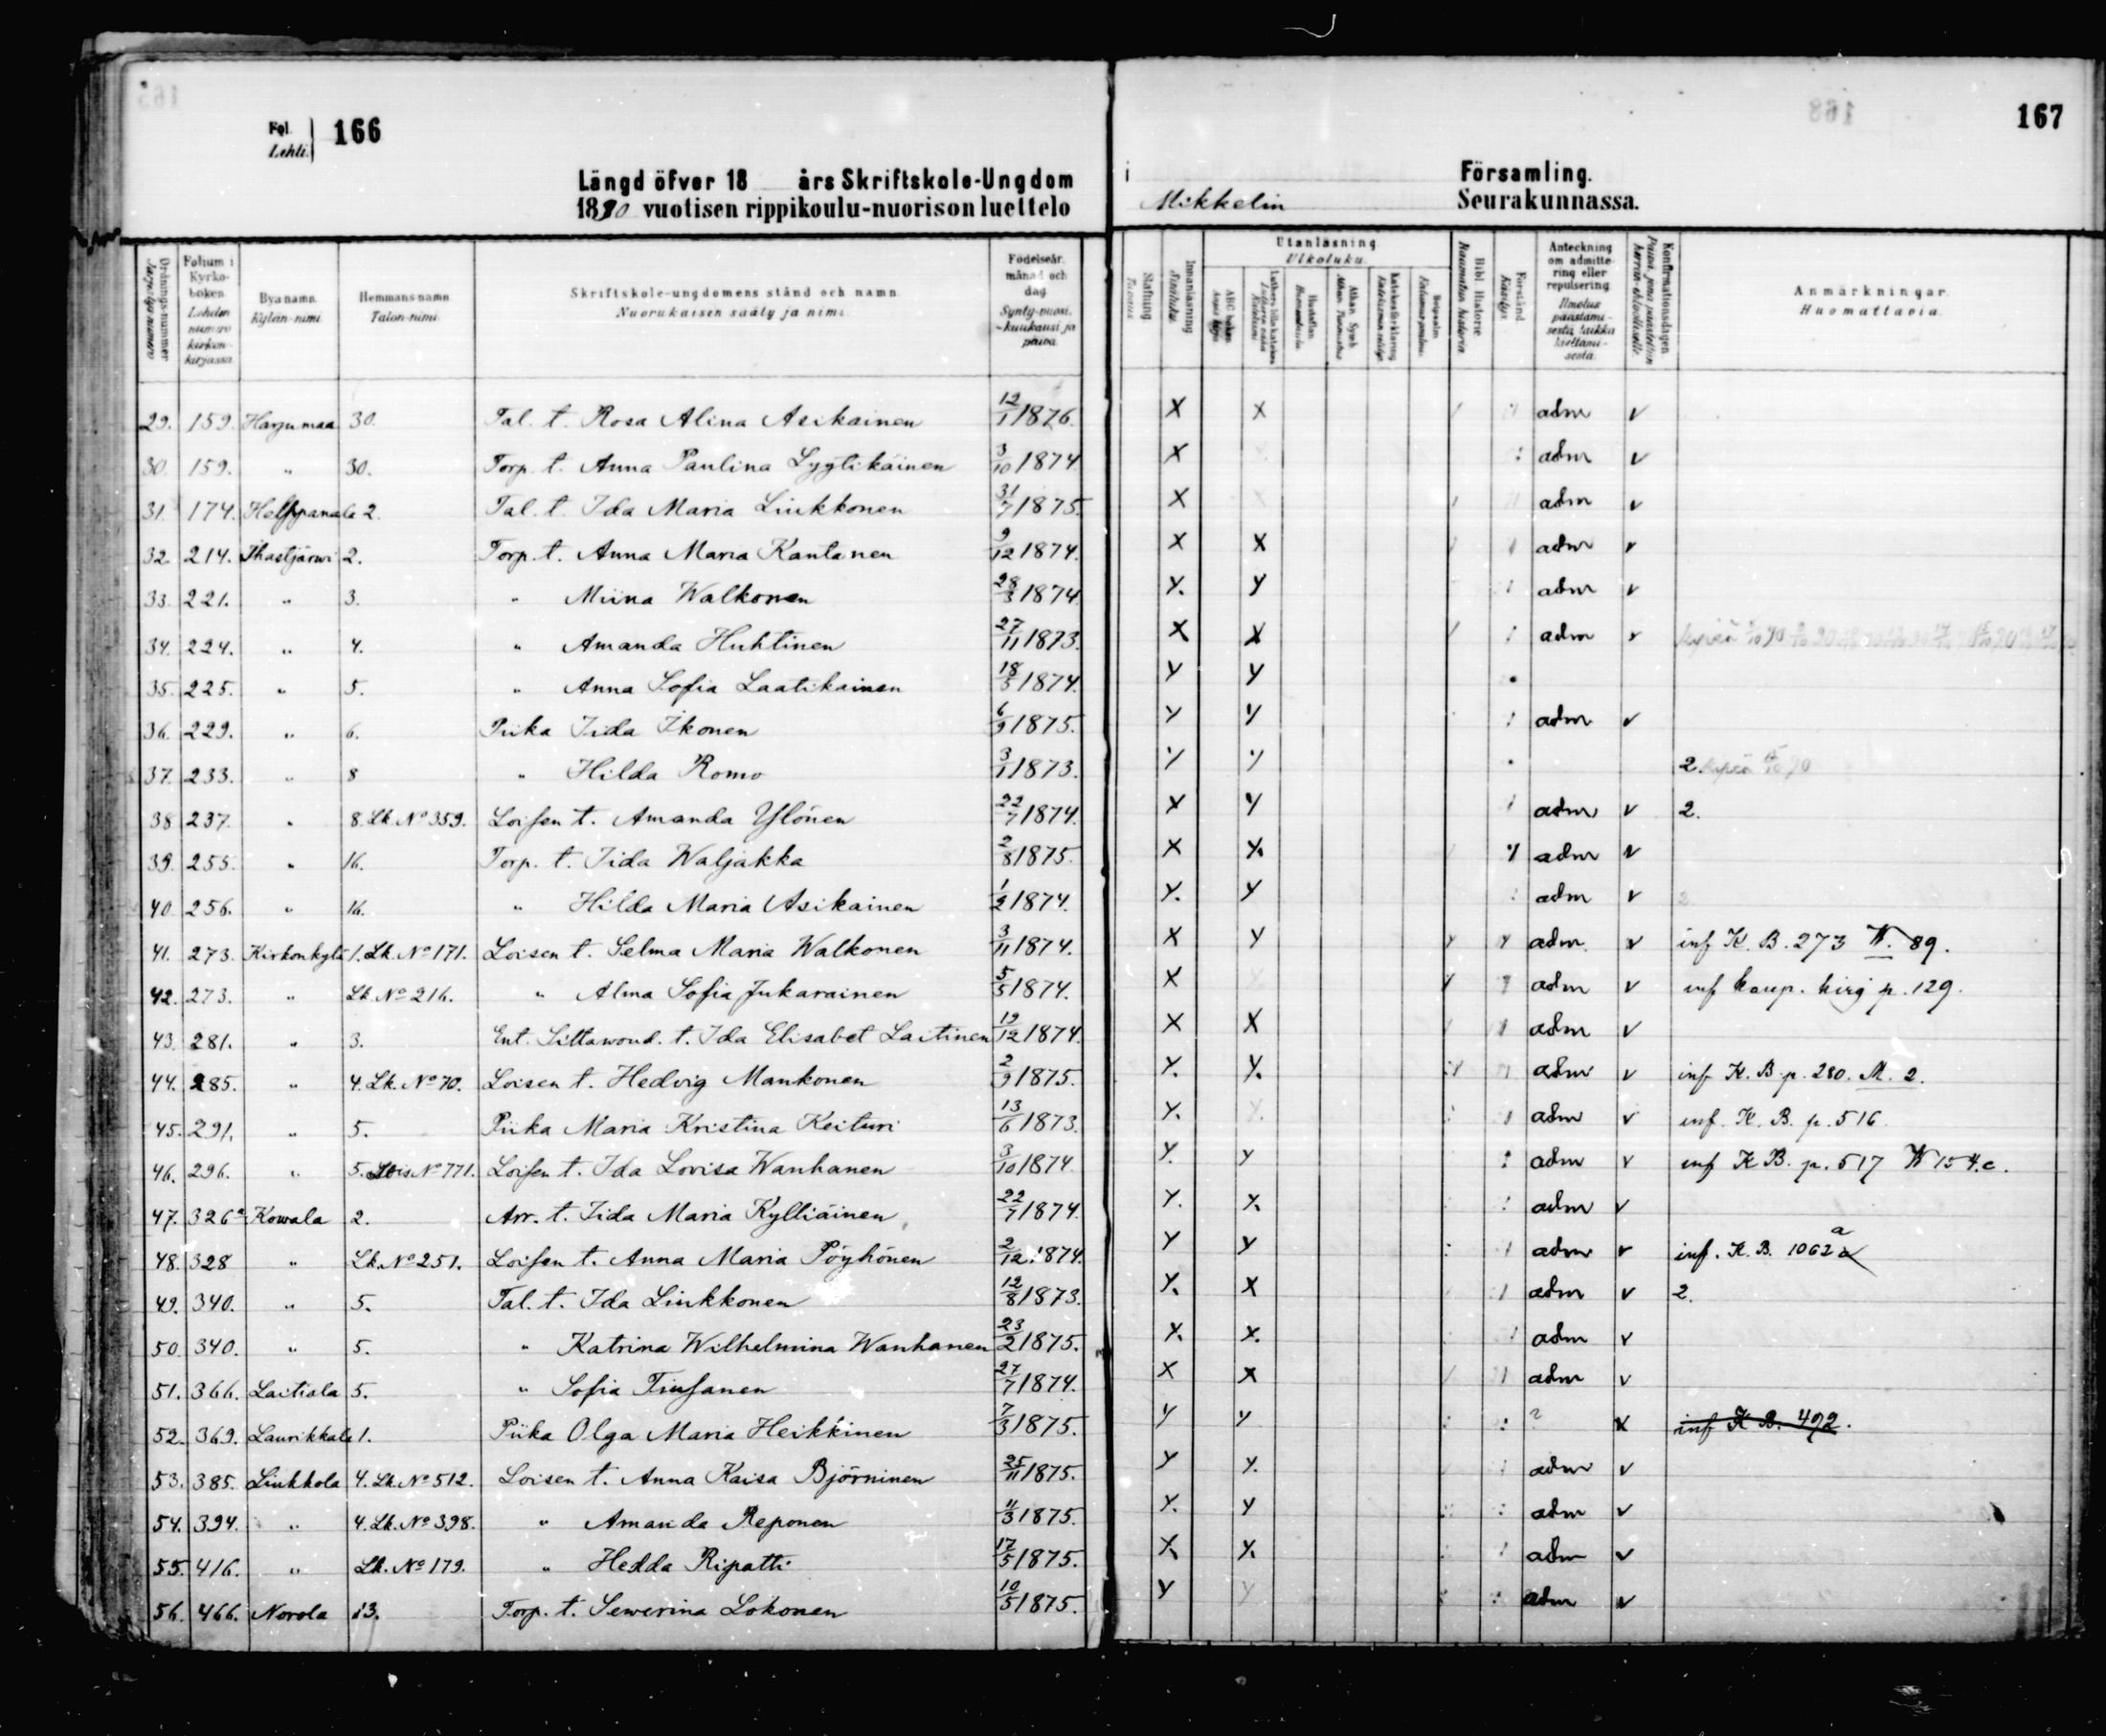 Fol. Lehti. 166
167
Längd öfver 18 års Skriftskole-Ungdom i Församling.
1890 vuotisen rippikoulu-nuorison luettelo Mikkelin Seurakunnassa.
Ordnings-nummer Järjestys-numero
Folium i Kyrko-boken. Lehden numero kirkon-kirjassa.
Bya namn. Kylän-nimi
Hemmans namn Talon-nimi.
Skriftskole-ungdomens stånd och namn. Nuorukaisen sääty ja nimi.
Födelseår, månad och dag Synty-vuosi, -kuukausi ja päivä.
Stafning Tavaus
Innanläsning Sisäluku.
Utanläsning Ulkoluku.
ABC boken
Luthers lilla katekes
Hustaflan Huoneentaulu
Athan. Symb.
Katekesförklaring
Botpsalm
Bibl. Historie. Raamatun historia
Förstånd. Käsitys
Anteckning om admitte-ring eller repulsering Ilmoitus päästämi-sestä taikka kieltämi-sestä.
Konfirmationsdagen
Anmärkningar. Huomattavia.
29. 159. Harjumaa 30. Tal. t. Rosa Alina Asikainen 12/1 1876. X X adm v
30. 159. " 30. Torp. t. Anna Paulina Lyytikäinen 3/10 1874 X adm v
31. 174. Helppanala 2. Tal. t. Ida Maria Liukkonen 31/7 1875. X adm v
32. 214. Ihastjärwi 2. Torp. t. Anna Maria Kantanen 9/12 1874. X X adm v
33. 221. " 3. " Miina Walkonen 28/3 1874 Y. Y adm v
34. 224. " 4. " Amanda Huhtinen 27/11 1873. X X adm v
35. 225. " 5. " Anna Sofia Laatikainen 18/5 1874. Y Y
36. 229. " 6. Piika Iida Ikonen 6/9 1875. Y Y adm v
37. 233. " 8 " Hilda Romo 3/1 1873. Y Y 2
38 237. " 8. Lk. No 359. Loisen t. Amanda Ylönen 22/7 1874. X Y adm v 2.
39. 255. " 16. Torp. t. Iida Waljakka 2/8 1875. X X. adm v
40 256. " 16. " Hilda Maria Asikainen 1/2 1874. Y. Y adm v 2
41. 273. Kirkonkylä 1. Lk. No 171. Loisen t. Selma Maria Walkonen 3/11 1874. X Y adm. v inf K. B. 273 W. 89.
42. 273. " Lk. No 216. " Alma Sofia Jukarainen 5/5 1874. X adm v inf kaup. kirj p. 129.
43. 281. " 3. Ent. Siltawoud. t. Ida Elisabet Laitinen 19/12 1874. X X adm v
44. 285. " 4. Lk. No 70. Loisen t. Hedvig Mankonen 2/9 1875. Y. Y. adm v inf K. B. p. 280. M. 2.
45. 291. " 5. Piika Maria Kristina Keituri 13/6 1873. Y. adm v inf. K. B. p. 516
46. 296. " 5. Lois No 771. Loisen t. Ida Lovisa Wanhanen 3/10 1874 Y. Y adm v inf K B. p. 517 W 154.c.
47. 326a. Kowala 2. Arr. t. Iida Maria Kylliäinen 22/7 1874. Y. X. adm v
48. 328 " Lk. No 251. Loisen t. Anna Maria Pöyhönen 2/12 1874. Y Y adm v inf. K. B. 1062 a
49. 340. " 5. Tal. t. Ida Liukkonen 12/8 1873. Y. X adm v 2.
50. 340. " 5. " Katrina Wilhelmina Wanhanen 23/2 1875. X. X. adm v
51. 366. Laitiala 5. " Sofia Tiusanen 27/7 1874. X X adm v
52. 369. Laurikkala 1. Piika Olga Maria Heikkinen 7/3 1875. Y Y ? X inf K B. 492.
53. 385. Liukkola 4. Lk. No 512. Loisen t. Anna Kaisa Björninen 25/11 1875. Y Y. adm v
54. 394. " 4. Lk. No 398. " Amanda Reponen 11/3 1875. Y. Y adm v
55. 416. " Lk. No 179. " Hedda Ripatti 17/5 1875. X. X. adm v
56. 466. Norola 13. Torp. t. Sewerina Lokonen 10/5 1875. Y Y adm v